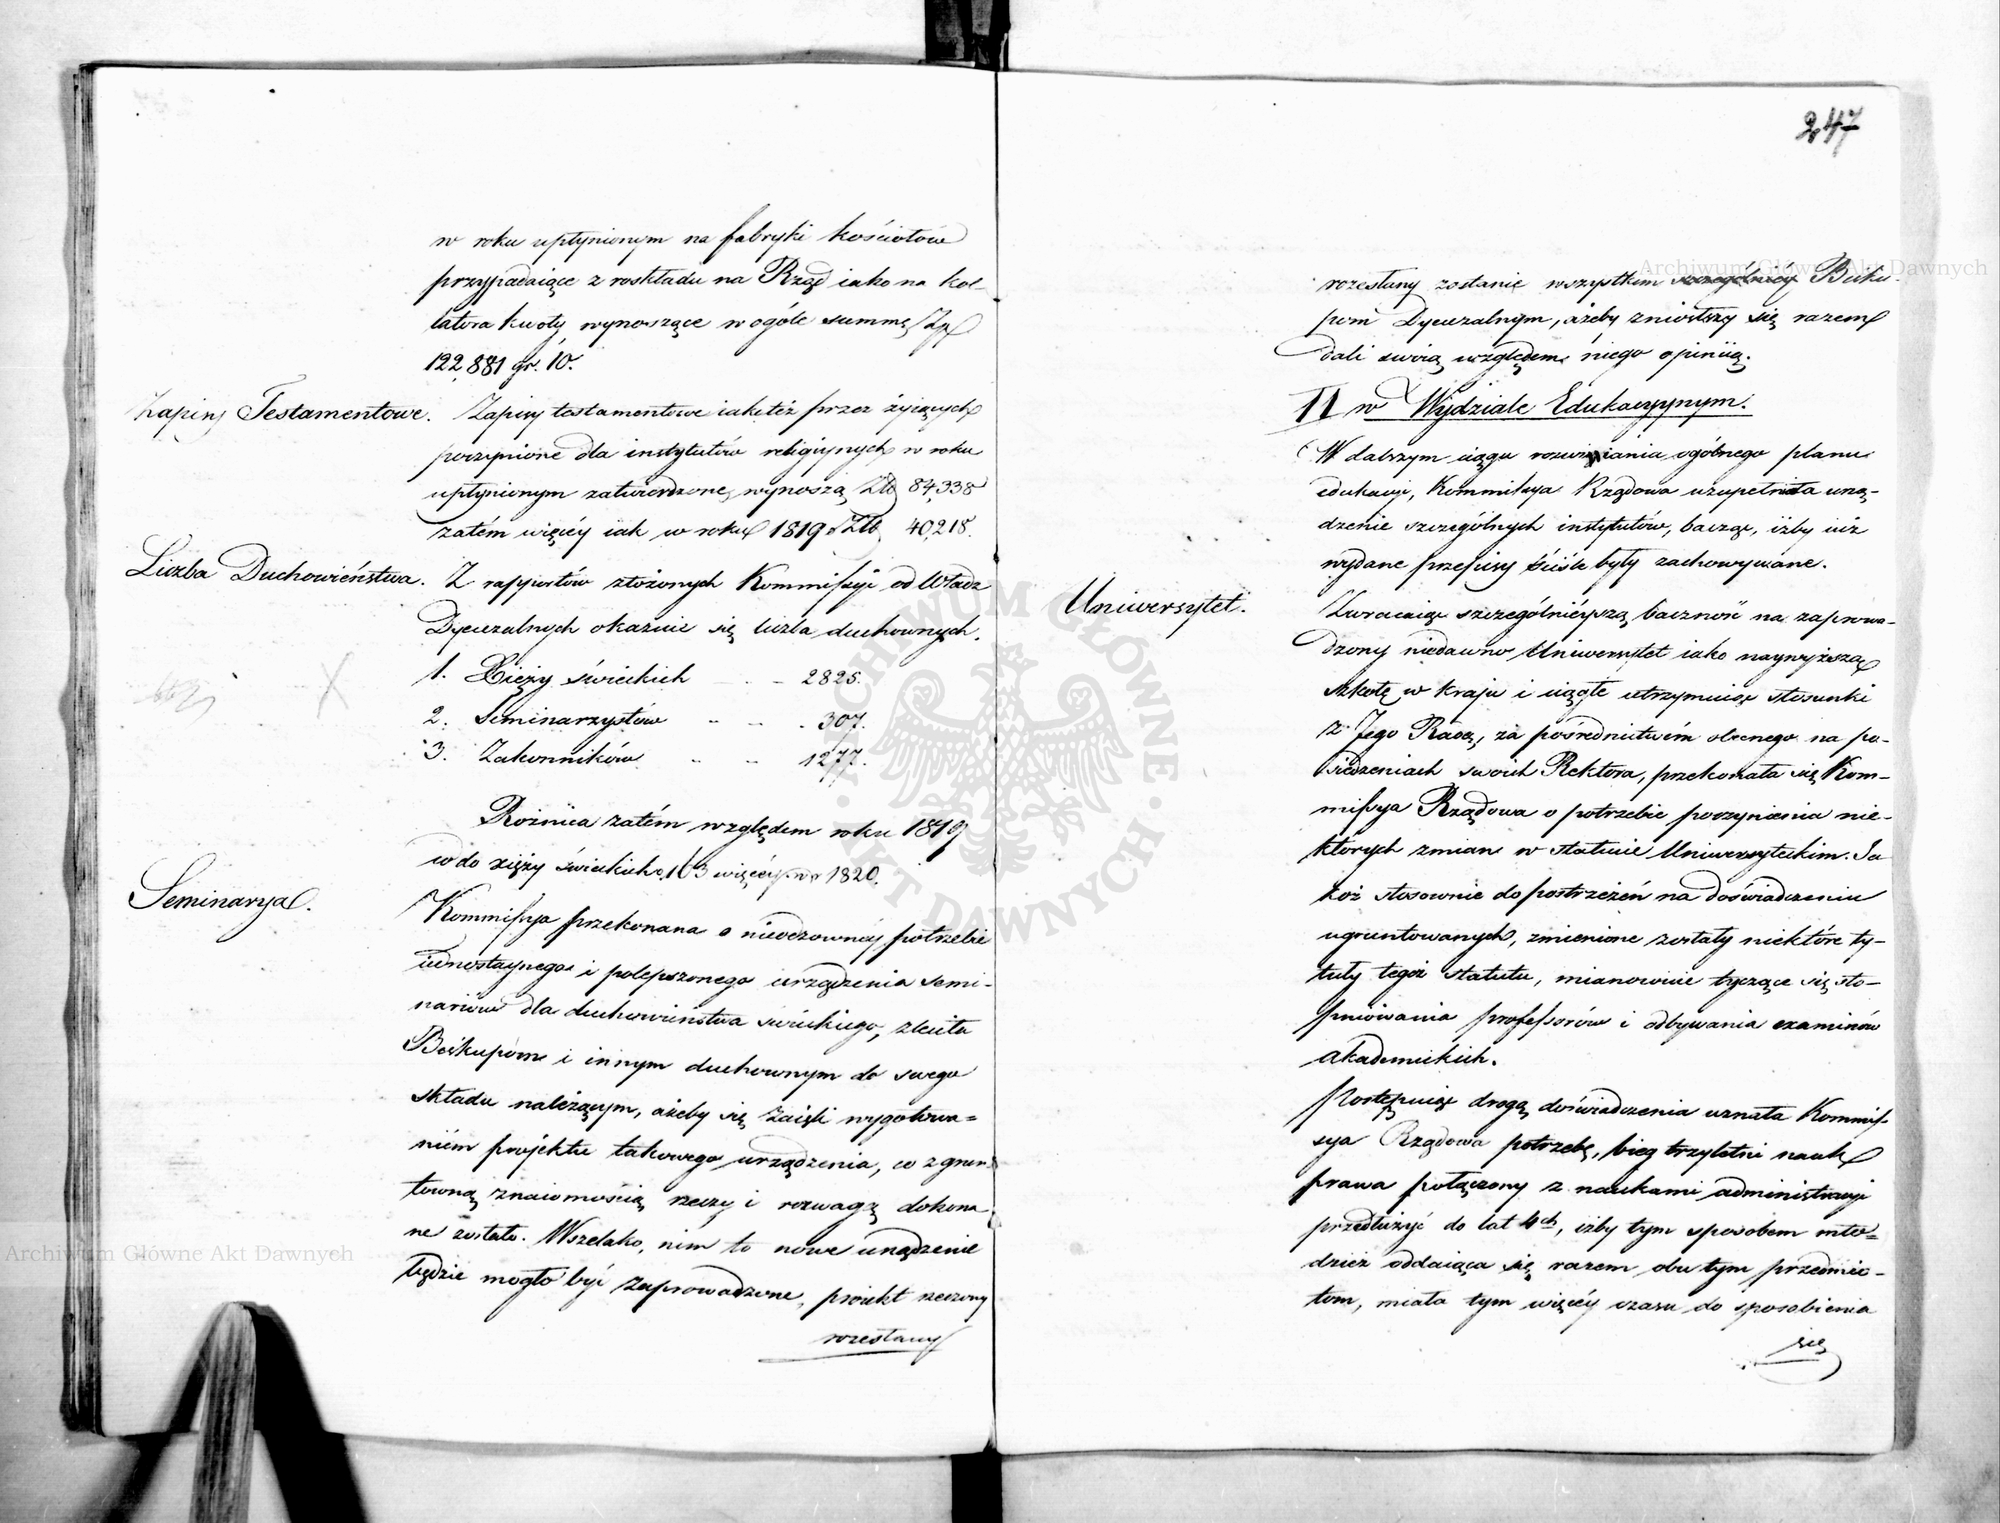 w roku upłynionym na fabryki kościołów
przypadaiące z roskładu na Rząd iako na kol-
latora kwoty wynoszące w ogóle summę Złp
122,881 gr. 10.
Zapisy Testamentowe. Zapisy testamentowe iakoteż przez żyiących
poczynione dla instytutów religiynych w roku
upłynionym zatwierdzone, wynoszą Złp 84,338
zatém więcéy iak w roku 1819 o Złp 40,218.
Liczba Duchowieństwa. Z rapportów złożonych Kommissyi od Władz
Dyecezalnych okazuie się liczba duchownych.
1. Xięży świeckich - - 2825.
2. Seminarzystów - - - 307.
3. Zakonników - - 1277.
Roźnica zatém względem roku 1819
co do xięży świeckich, 163 więcéy w r 1820.
Seminarya. Kommissya przekonana o nieodzownéy potrzebie
iednostaynego i polepszonego urządzenia semi-
nariów dla duchowieństwa świeckiego, zleciła
Biskupóm i innym duchownym do swego
składu należącym, ażeby się zaięli wygotowa-
niem projektu takowego urządzenia, co z grun-
towną znaiomością rzeczy i rozwagą dokona
ne zostało. Wszelako, nim to nowe urządzenie
będzie mogło być zaprowadzone, proiekt rzeczony
rozesłany
247
rozesłany zostanie wszystkim szczególnéy Bisku-
pom Dyecezalnym, ażeby zniosłszy się razem
dali swoią względem niego opinią.
II w Wydziale Edukacyynym.
W dalszym ciągu rozwiiania ogólnego planu
edukacyi, Kommissya Rządowa uzupełniała urzą-
dzenie szczególnych instytutów, bacząc, iżby iuż
wydane przepisy ściśle były zachowywane.
Uniwersytet. Zwracaiąc szczególniéyszą baczność na zaprowa-
dzony niedawno Uniwersytet iako naywyższą
szkołę w kraju i ciągłe utrzymuiąc stosunki
z Jego Radą, za pośrednictwém obecnego na po-
siedzeniach swoich Rektora, przekonała się Kom-
missya Rządowa o potrzebie poczynienia nie-
których zmian w statucie Uniwersyteckim. Ja
koż stosownie do postrzeżeń na doświadczeniu
ugruntowanych, zmienione zostały niektóre ty-
tuły tegoż statutu, mianowicie tyczące się sto-
pniowania professorów i odbywania examinów
akademickich.
Postępuiąc drogą doświadczenia uznała Kommis-
sya Rządowa potrzebę, bieg trzyletni nauk
prawa połączony z naukami administracyi
przedłużyć do lat 4ch, iżby tym sposobem mło-
dzież oddaiąca się razem obu tym przedmio-
tom, miała tym więcéy czasu do sposobienia
się
Archiwum Główne Akt Dawnych
Archiwum Główne Akt Dawnych
ARCHIWUM GŁÓWNE · AKT DAWNYCH ·